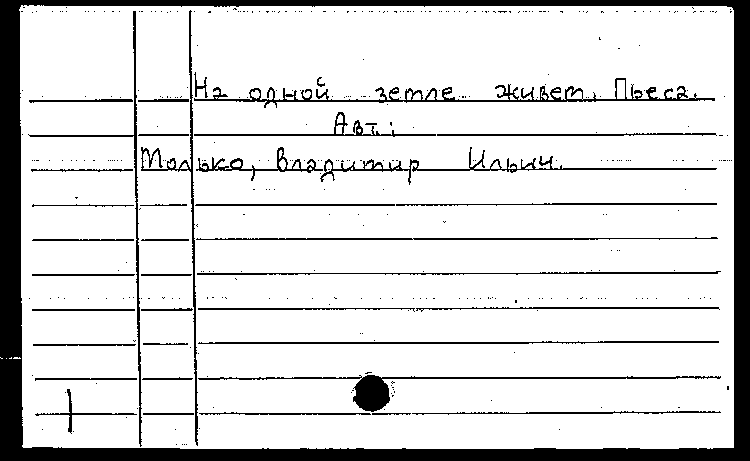 На одной земле живем. Пьеса.
Авт.:
Молько, Владимир Ильич.